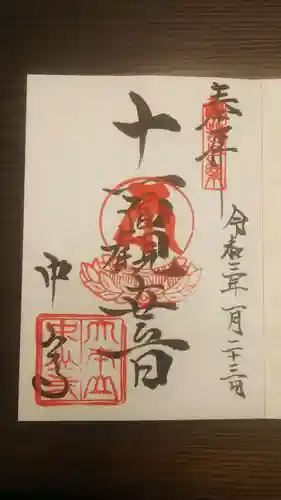 奉拝
令和二年一月二十二日
十一面観世音
中山寺